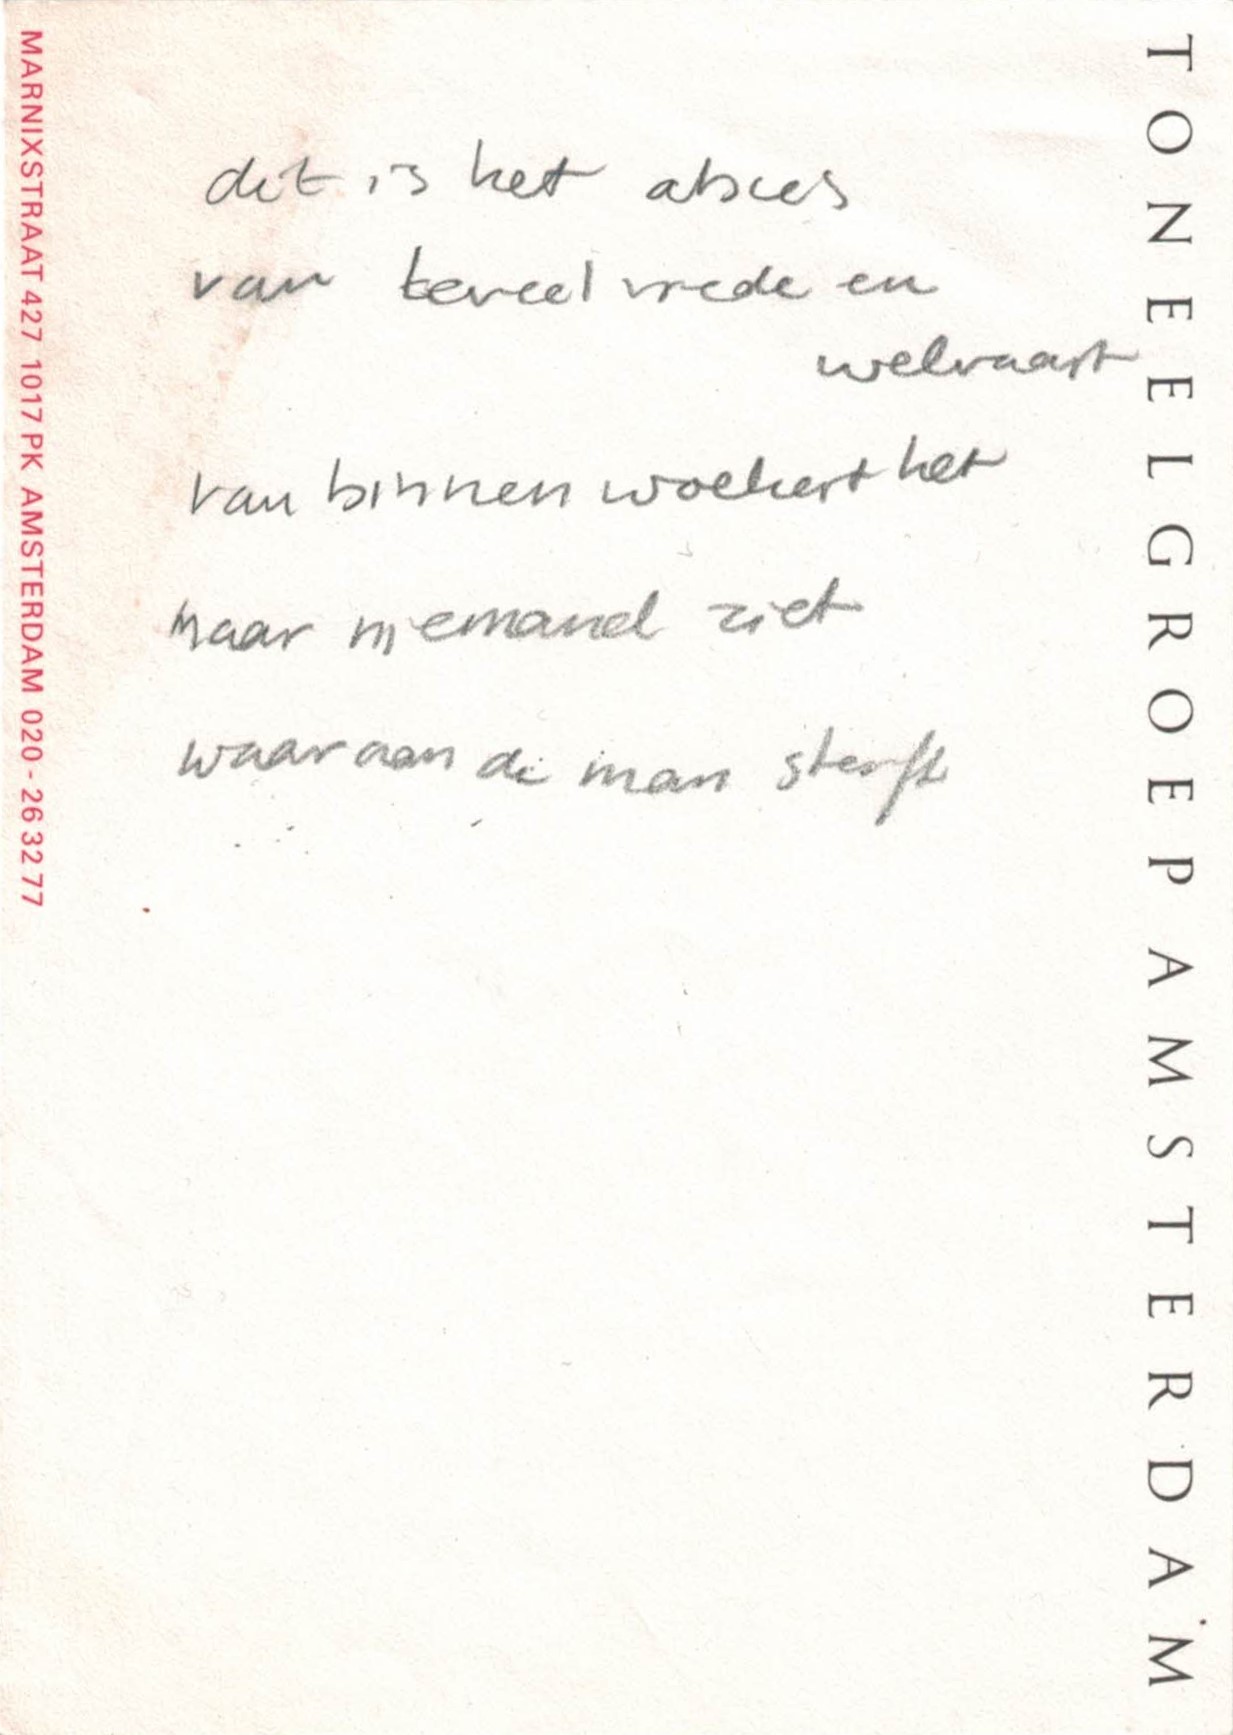 dit is het abces
van teveel vrede en
welvaart
van binnen woekert het
maar niemand ziet
waaraan de man sterft
MARNIXSTRAAT 427 1017 PK AMSTERDAM 020 - 26 32 77
TONEELGROEP AMSTERDAM